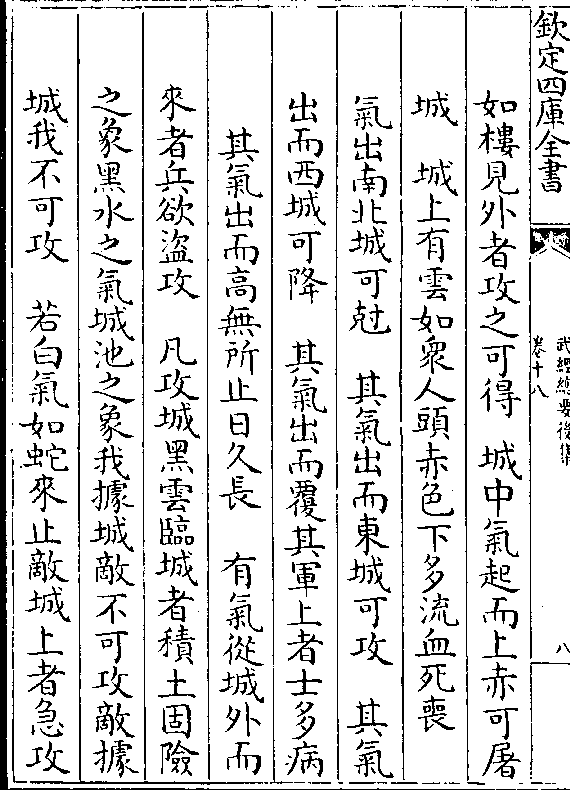 欽定四庫全書
武經總要後集
卷十八
八
如樓見外者攻之可得　城中氣起而上赤可屠
城　城上有雲如衆人頭赤色下多流血死喪
氣出南北城可尅　其氣出而東城可攻　其氣
出而西城可降　其氣出而覆其軍上者士多病
其氣出而高無所止日久長　有氣從城外而
來者兵欲盜攻　凡攻城黑雲臨城者積土固險
之象黑水之氣城池之象我據城敵不可攻敵據
城我不可攻　若白氣如蛇來止敵城上者急攻